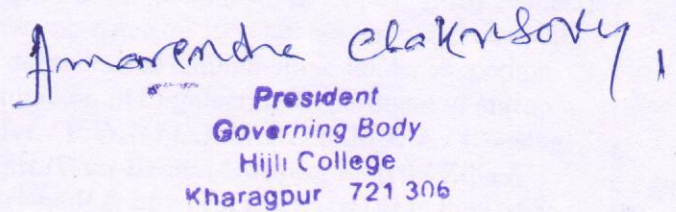 Amarendra Chakraborty,
President
Governing Body
Hijli College
Kharagpur 721 306